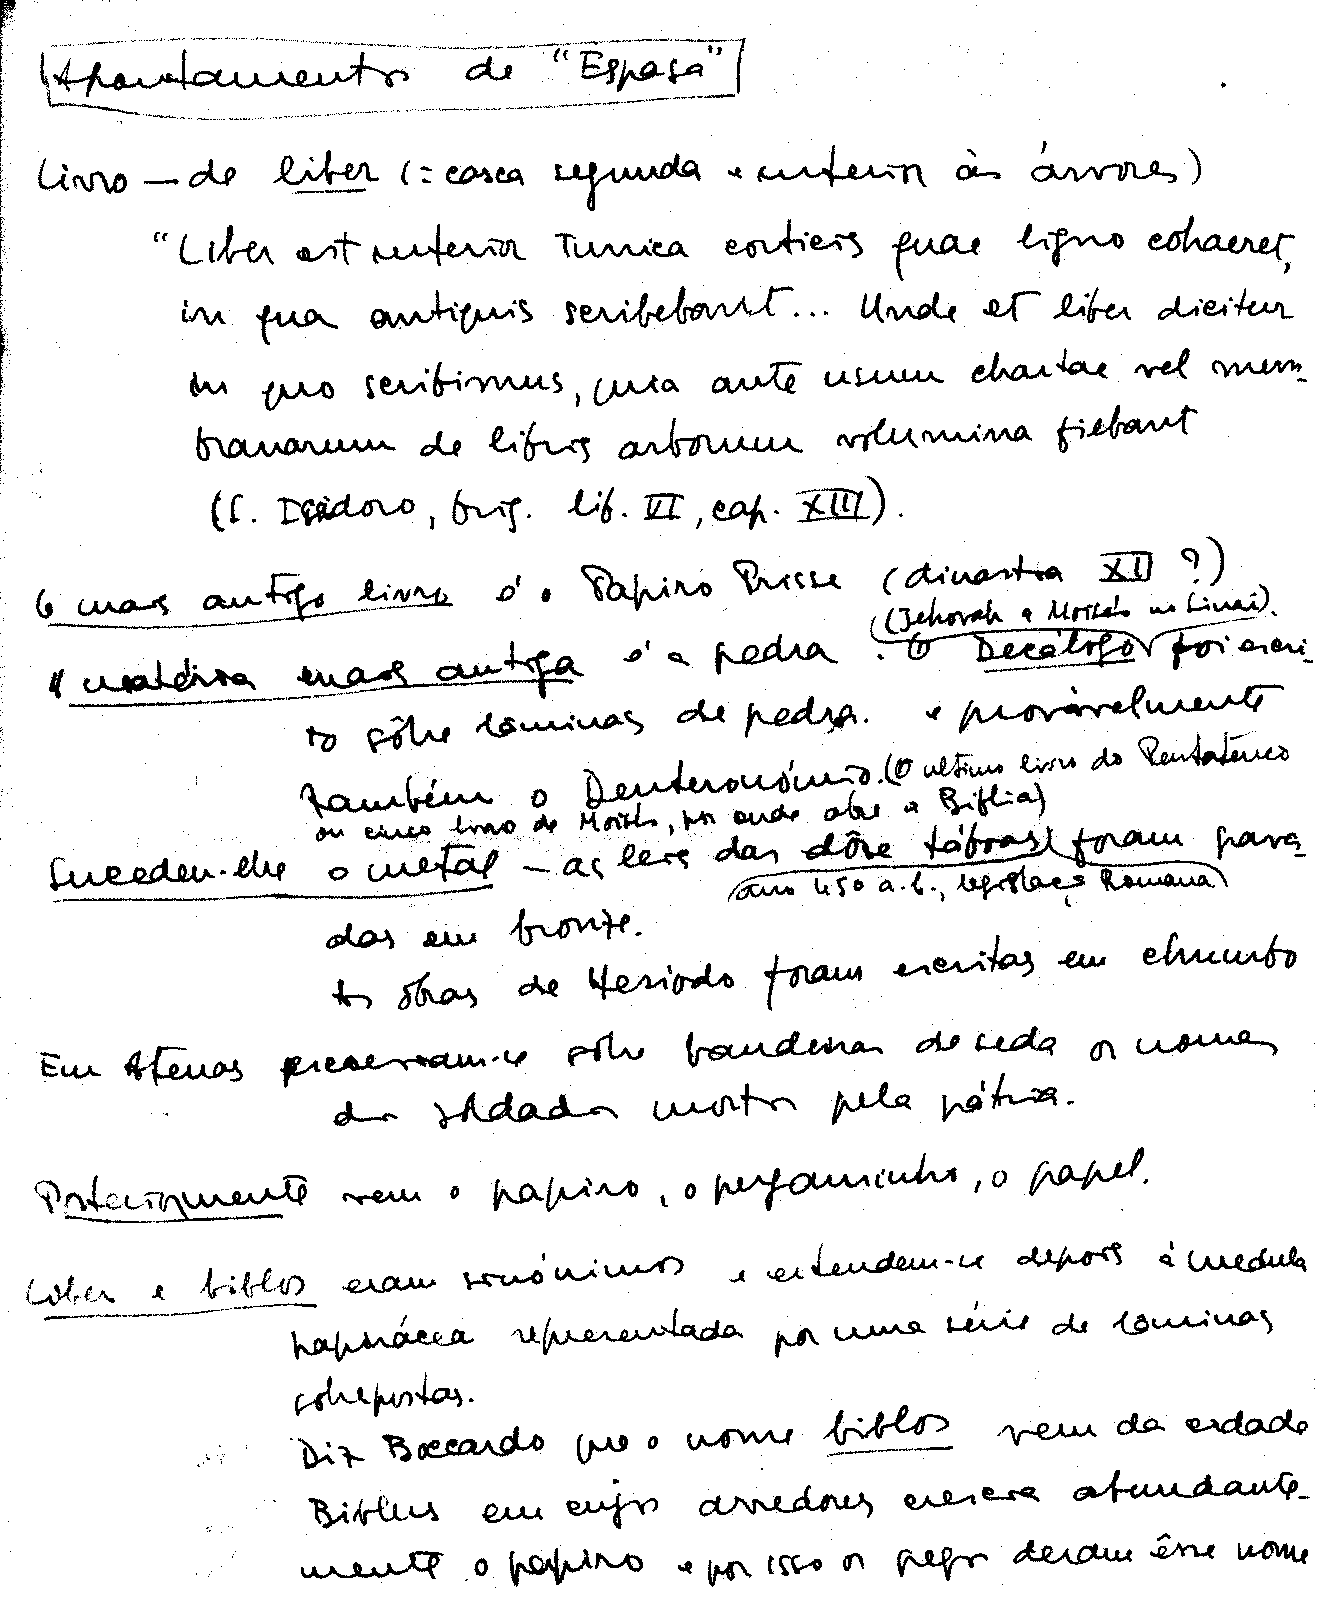 Apontamentos de "Espasa"
Livro — de liber (= casca segunda e interior às árvores)
"Liber est interior tunica corticis quae ligno cohaeret,
in qua antiquis scribebant... Unde et liber dicitur
in quo scribimus, quia ante usum chartae vel mem-
branarum de libris arborum volumina fiebant
(S. Isidoro, Orig. lib. VI, cap. XIII).
O mais antigo livro é o Papiro Prisse (dinastia XII ?)
(Jehovah a Moisés no Sinai).
A matéria mais antiga é a pedra. O Decálogo foi escri-
to sôbre lâminas de pedra. e provàvelmente
também o Deuteronómio. (O ultimo livro do Pentateuco
ou cinco livro de Moisés, por onde abre a Biblia)
Sucedeu-lhe o metal — as leis das dôze tábuas foram grava-
(ano 450 a.C., legislação Romana)
das em bronze.
As obras de Hesiodo foram escritas em chumbo
Em Atenas escreveram-se sôbre bandeiras de seda os nomes
dos soldados mortos pela pátria.
Posteriormente vem o papiro, o pergaminho, o papel.
Liber e biblos eram sinónimos e estendem-se depois à medula
papirácea representada por uma série de lâminas
sobrepostas.
Diz Boccardo que o nome biblos vem da cidade
Biblus em cujos arredores crescia abundante-
mente o papiro e por isso os gregos deram êsse nome